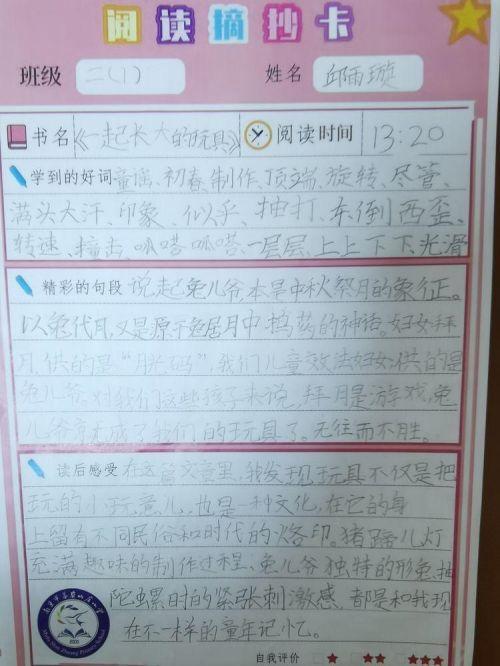 阅读摘抄卡
班级 二(1) 姓名 邱雨璇
书名《一起长大的玩具》 阅读时间 13:20
学到的好词 童谣、初春、制作、顶端、旋转、尽管、
满头大汗、印象、似乎、抽打、东倒西歪、
转速、撞击、呱嗒呱嗒、一层层、上上下下、光滑
精彩的句段 说起兔儿爷,本是中秋祭月的象征。
以兔代月,又是原于兔居月中捣药的神话。妇女拜
月,供的是“月光码”,我们儿童效法妇女,供的是
兔儿爷。对我们这些孩子来说,拜月是游戏,兔
儿爷亦成了我们的玩具了。无往而不胜。
读后感受 在这篇文章里,我发现玩具不仅是把
玩的小玩意儿,也是一种文化,在它的身
上留有不同民俗和时代的烙印。猪蹄儿灯
充满趣味的制作过程、兔儿爷独特的形象、抽
陀螺时的紧张刺激感,都是和我现
在不一样的童年记忆。
自我评价